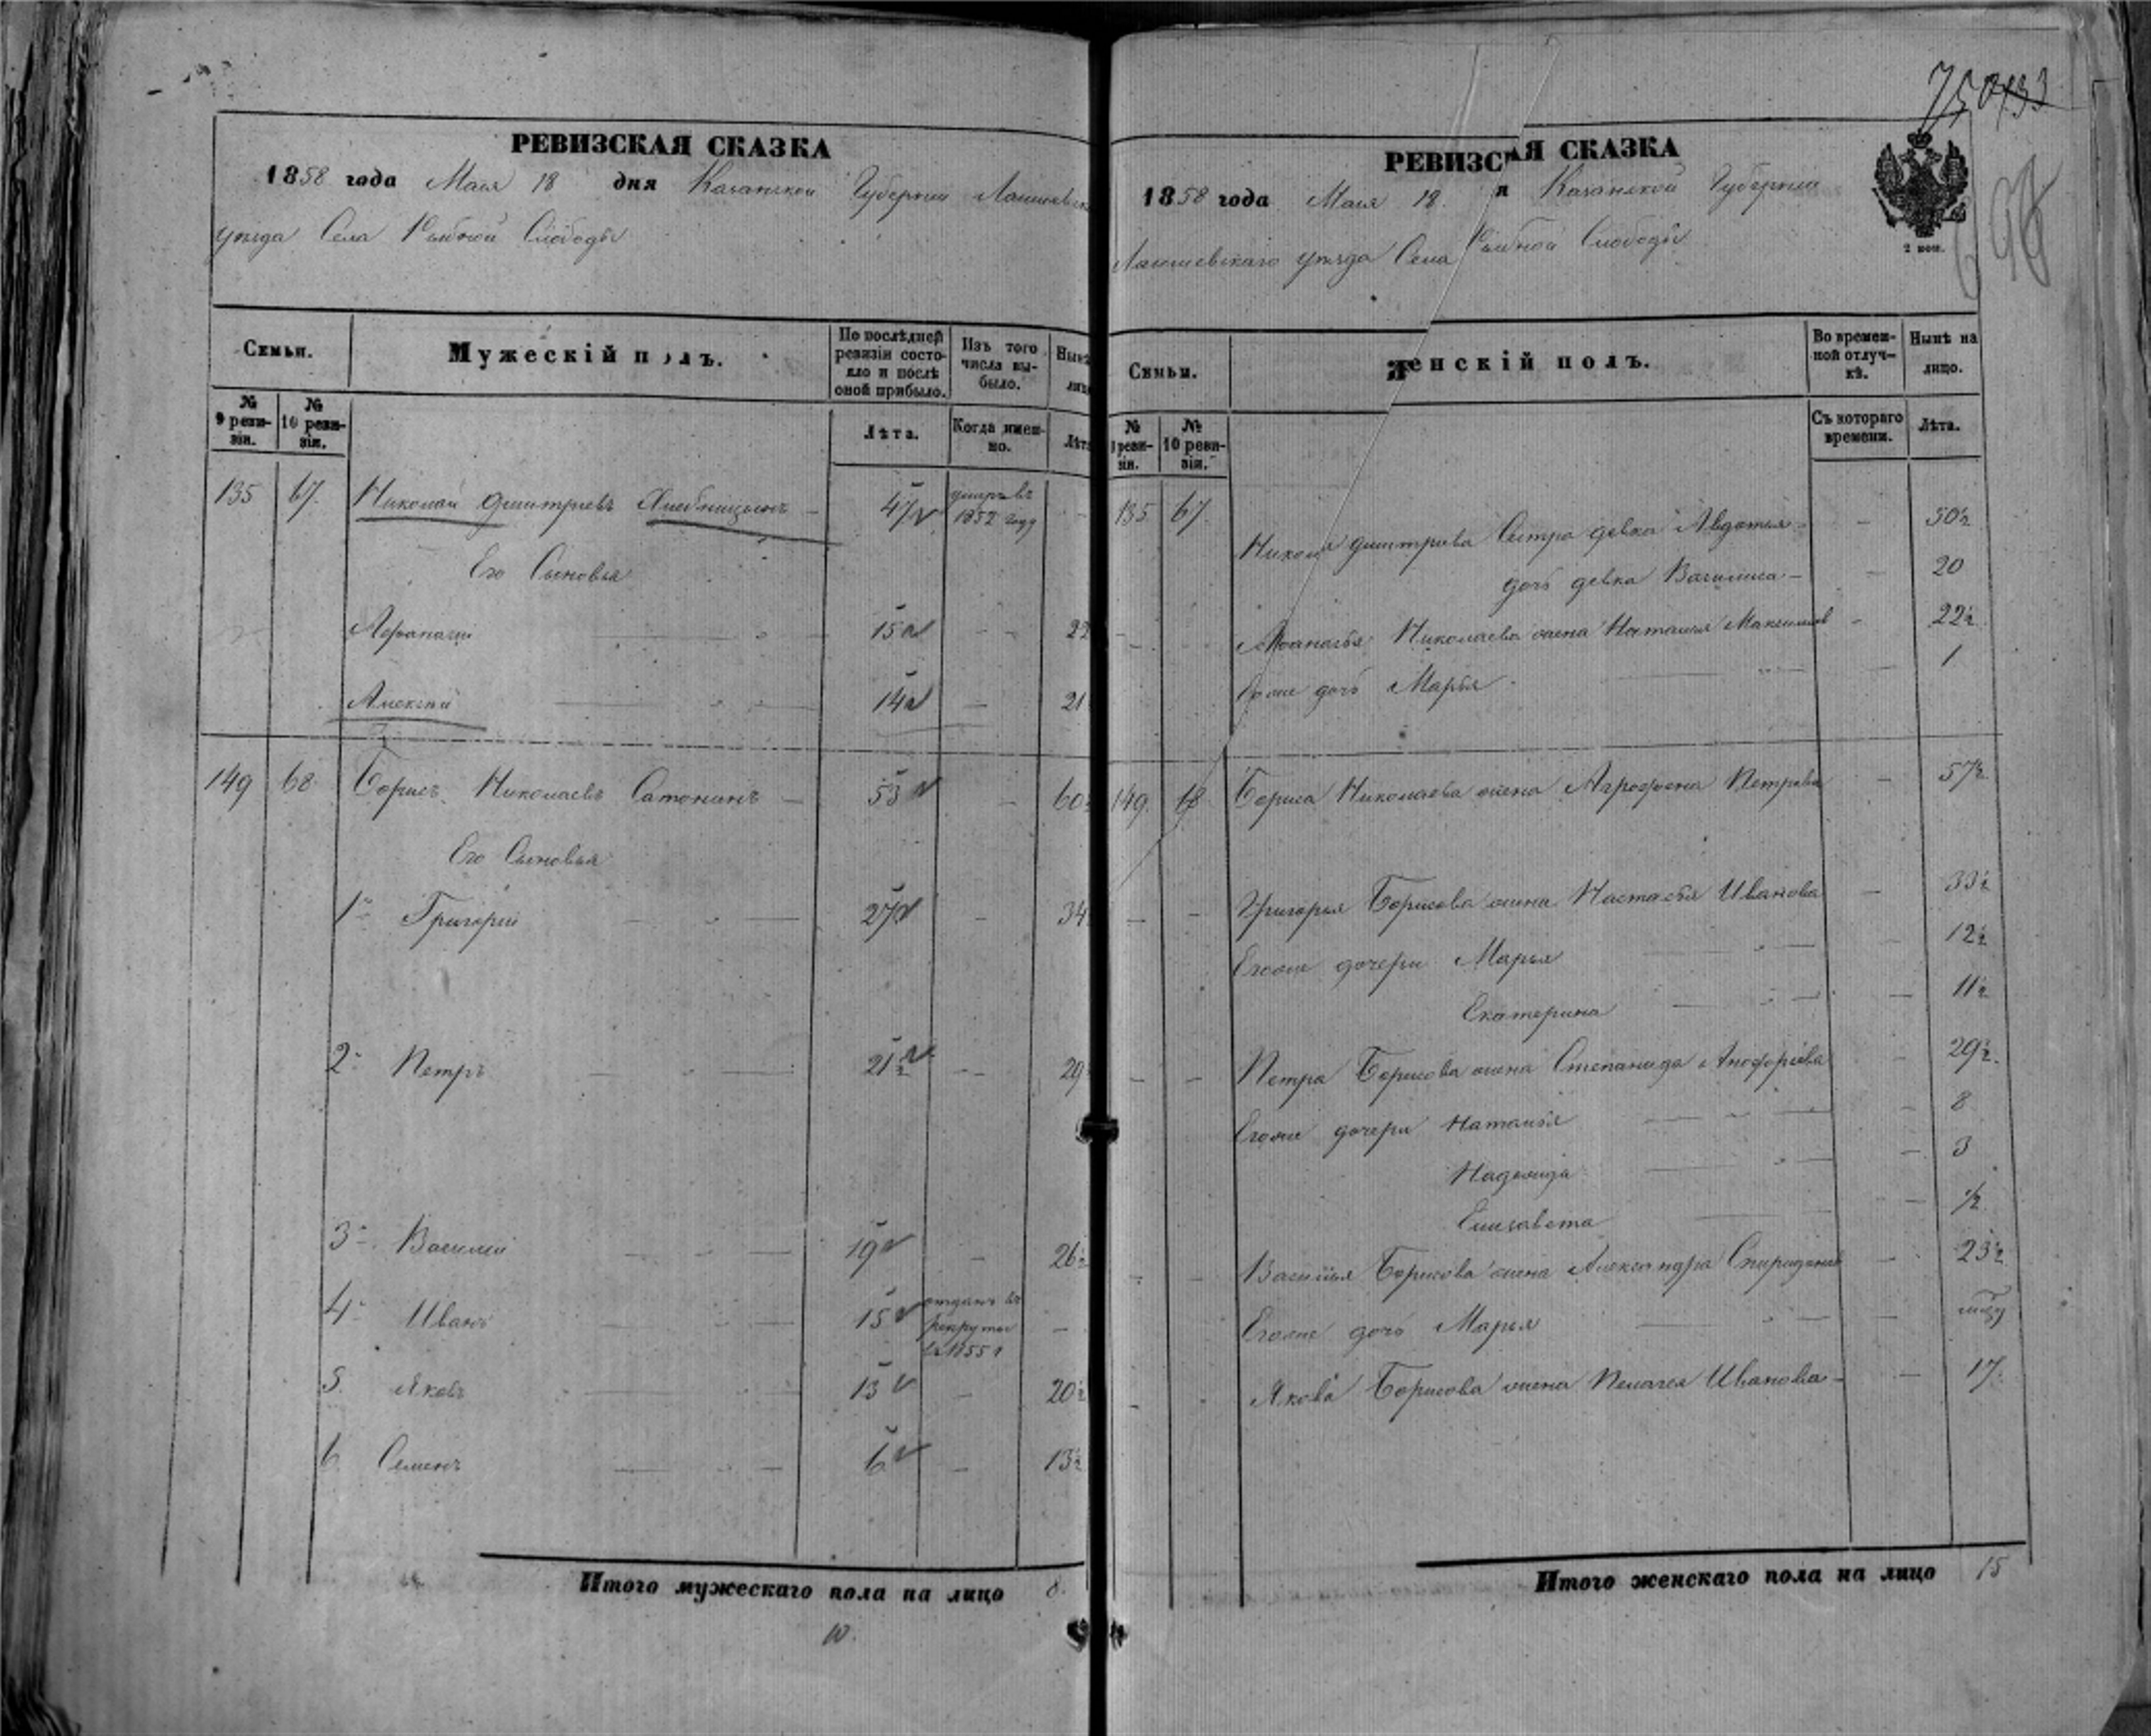 РЕВИЗСКАЯ СКАЗКА
1858 года Мая 18 дня Казанской Губернии Лаишевска
уѣзда Села Рыбной Слободы
Семьи.
Мужескій полъ.
По послѣдней ревизіи состояло и послѣ оной прибыло.
Изъ того числа выбыло.
Нынѣ
лицо
№ 9 ревизіи.
№ 10 ревизіи.
Лѣта.
Когда именно.
Лѣта
135 67. Николай Дмитріевъ Хлебницынъ - 47 умръ въ 1852 году -
Его Сыновья
Афанасій 15 - - 22
Алексѣй 14 - 21
149 68 Борисъ Николаевъ Сатонинъ - 53 - 60
Его Сыновья
1й Григорій 27 - 34
2й Петръ 21½ - - 29
3й Василій 19 - 26½
4й Иванъ 15 отданъ въ рекруты въ 1855 г -
5. Яковъ 13 - 20½
6. Семенъ 6 - 13½
Итого мужескаго пола на лицо 8.
10.
750 133
РЕВИЗСКАЯ СКАЗКА
1858 года Мая 18. я Казанской Губерніи
Лаишевскаго уѣзда Села Рыбной Слободы
2 коп.
Семьи.
Женскій полъ.
Во временной отлучкѣ.
Нынѣ на лицо.
№ 9 ревизіи.
№ 10 ревизіи.
Съ котораго времени.
Лѣта.
135 67. Николая Дмитріева Сестра девка Авдотья - - 50½
дочь девка Василиса - - 20
Афанасья Николаева жена Наталья Максимов - 22½
Егоже дочь Марья - 1
149. 68 Бориса Николаева жена Агрофена Петрова - 57½
Григорья Борисова жена Настасья Иванова - 33½
Егоже дочери Марья - 12½
Екатерина - 11½
Петра Борисова жена Степанида - 29½.
Егоже дочери Наталья - 8
Надежида - 3
Елизавета - ½
Василья Борисова жена Александра Спиридонов - 23½
Егоже дочь Марья -
Якова Борисова жена Пелагея Иванова - - 17.
Итого женскаго пола на лицо 15